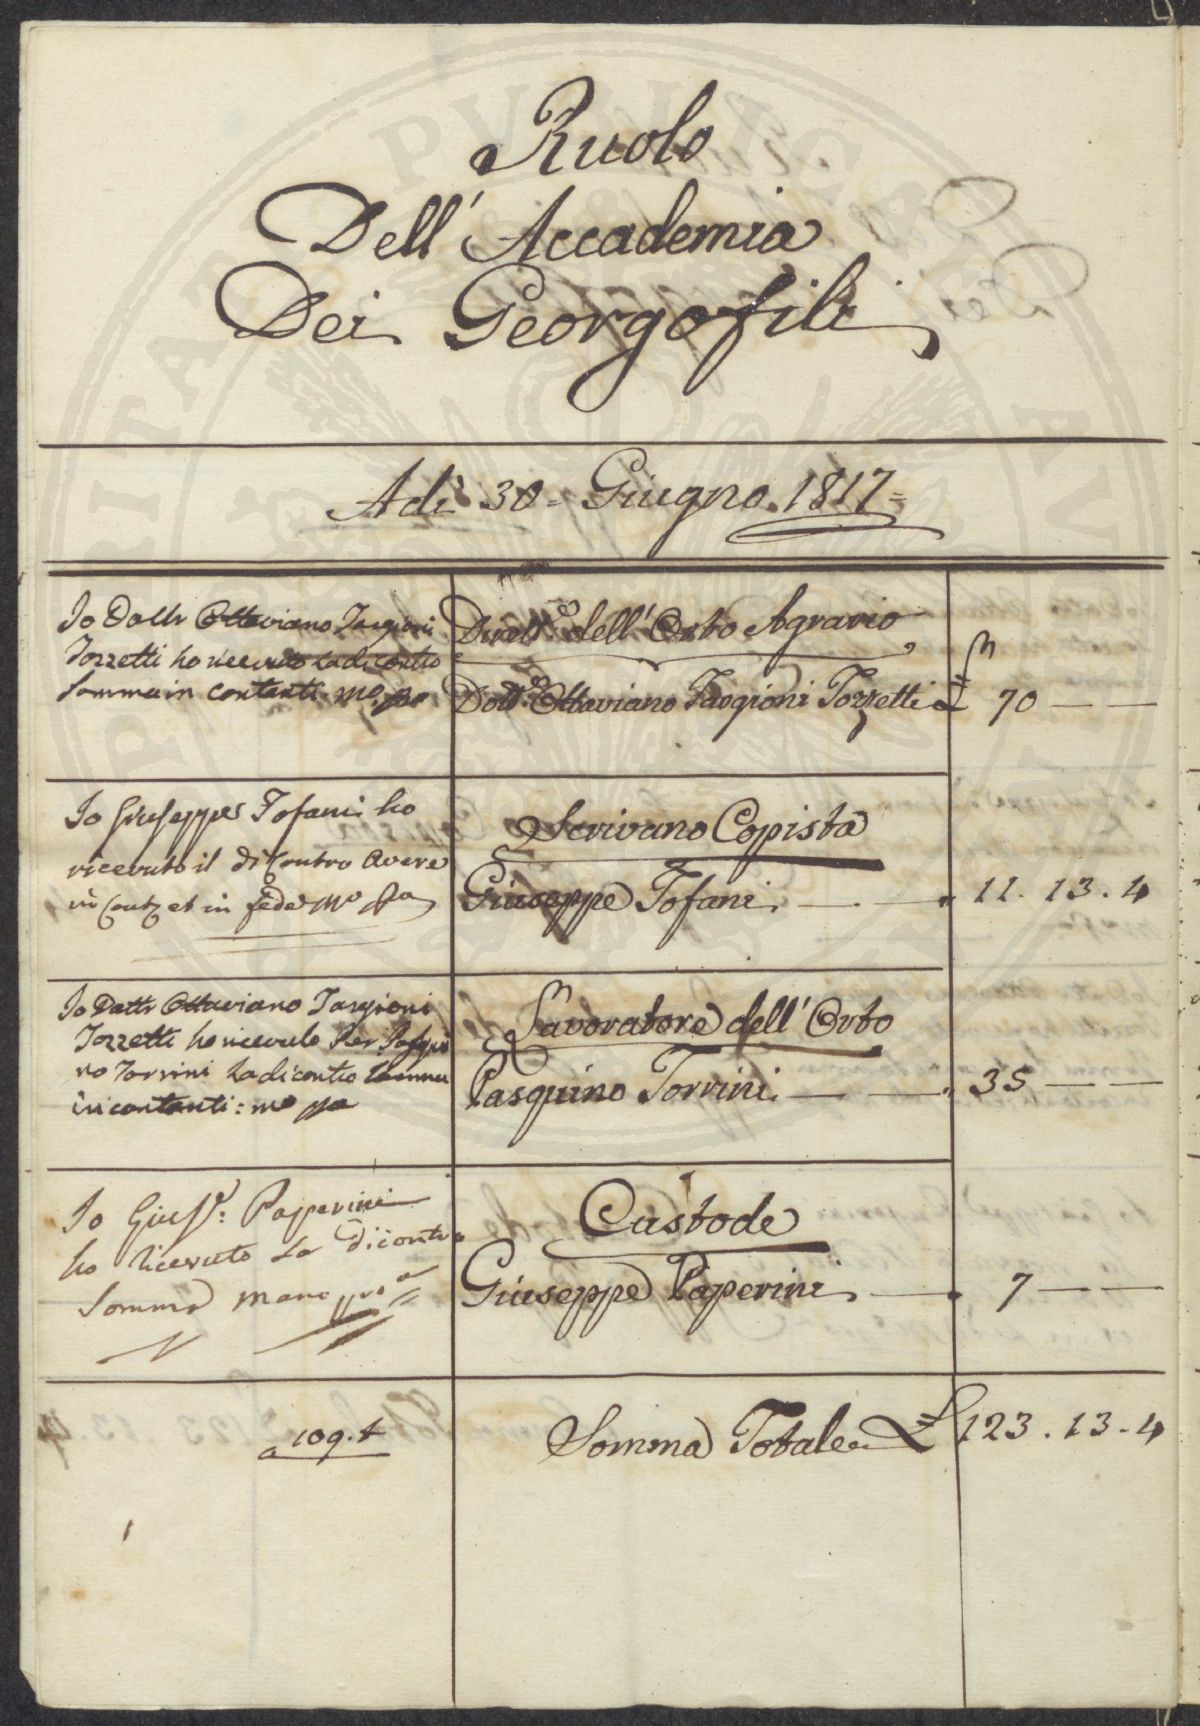 Ruolo
Dell' Accademia
Dei Georgofili
Adi 30 = Giugno 1817 =
Io Dottr Ottaviano Targioni
Tozzetti ho ricevuto la di contro
Somma in contanti mo. ppa
Dirett.e dell' Orto Agrario
Dott.e Ottaviano Targioni Tozzetti £ 70 — —
Io Giuseppe Tofani ho
ricevuto il di Contro Avere
in Cont et in fede mo ppa
Scrivano Copista
Giuseppe Tofani — — 11. 13. 4
Io Dottr Ottaviano Targioni
Tozzetti ho ricevuto Per Pasqui
no Torrini la di contro somma
in contanti: mo ppa
Lavoratore dell' Orto
Pasquino Torrini — — 35 — —
Io Giusp.e: Papperini
ho ricevuto la di contro
Somma mano ppria
Custode
Giuseppe Paperini — 7 — —
a 109.t
Somma Totale £ 123. 13. 4
PUBLICAE